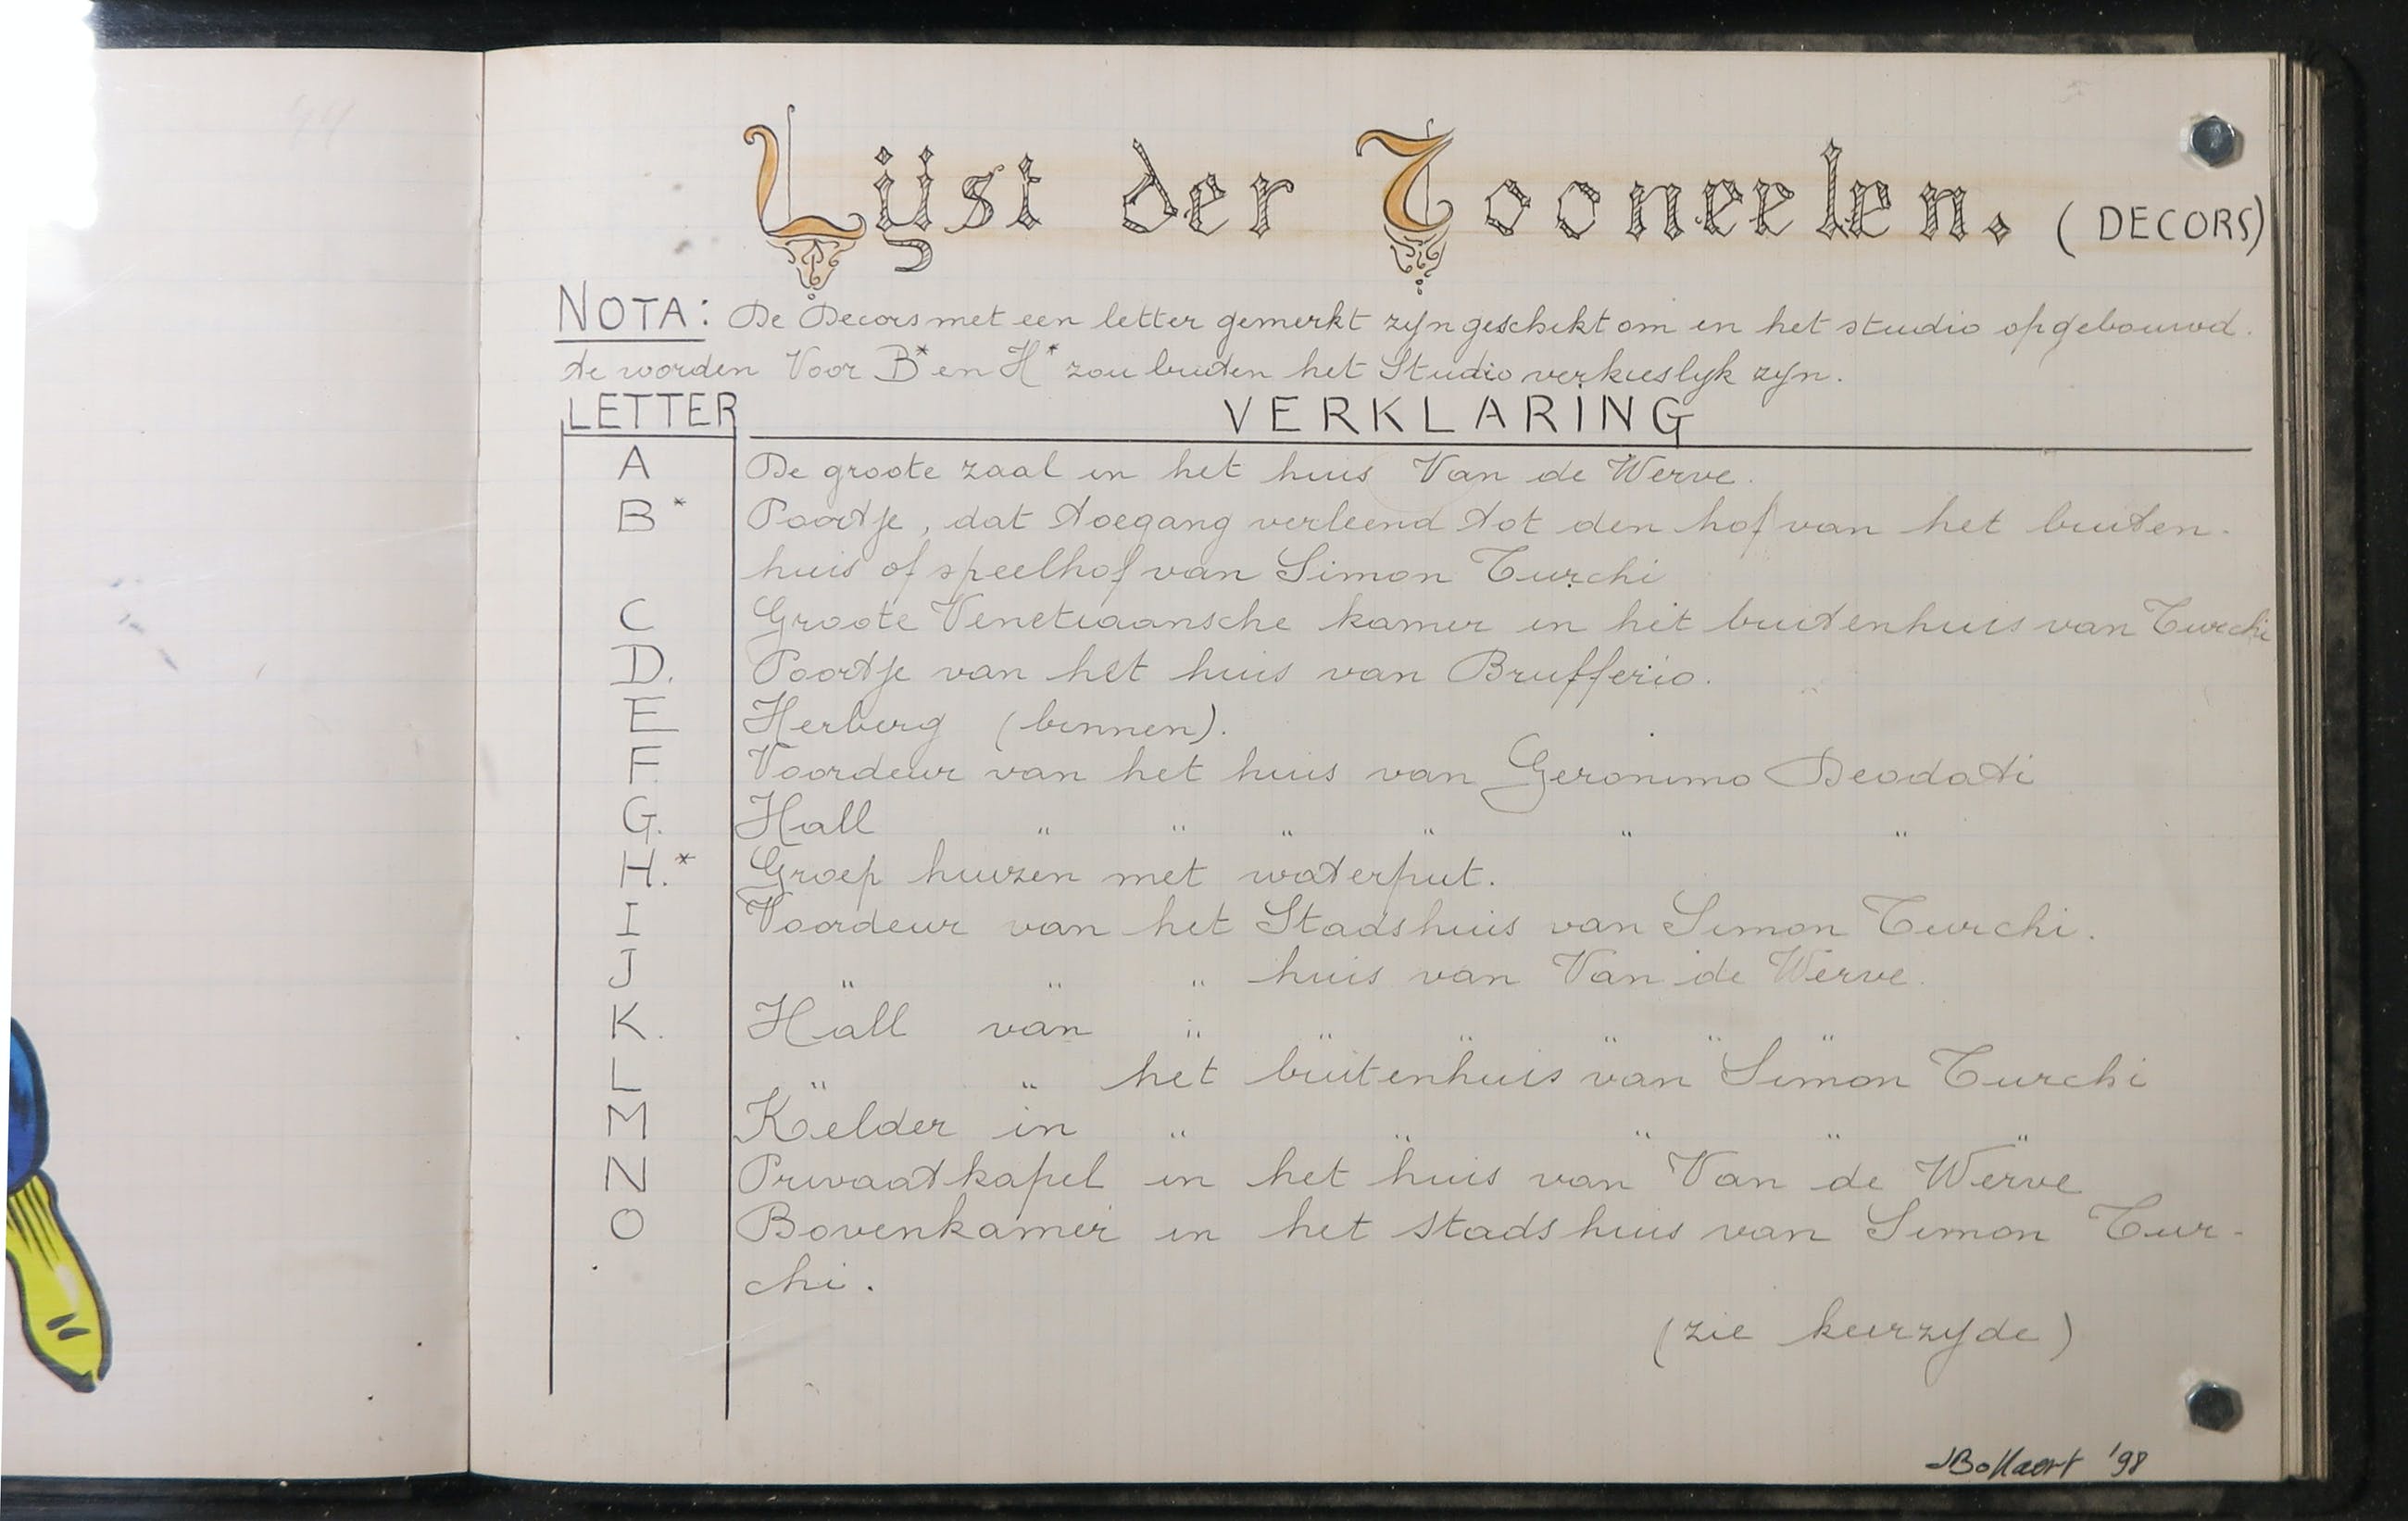 Lijst der Tooneelen. (DECORS)
NOTA: De Decors met een letter gemerkt zijn geschikt om in het studio opgebouwd.
te worden Voor B* en H* zou buiten het Studio verkieslyk zyn.
LETTER VERKLARING
A De groote zaal in het huis Van de Werve.
B* Poortje, dat toegang verleend tot den hof van het buiten-
huis of speelhof van Simon Turchi
C Groote Venetiaansche kamer in het buitenhuis van Turchi
D. Poortje van het huis van Brufferio.
E Herberg (binnen).
F. Voordeur van het huis van Geronimo Deodati
G. Hall " " " " " "
H.* Groep huizen met waterput.
I Voordeur van het Stadshuis van Simon Turchi.
J " " " huis van Van de Werve.
K. Hall van " " " " "
L " " het buitenhuis van Simon Turchi
M Kelder in " " " " "
N Privaatkapel in het huis van Van de Werve
O Bovenkamer in het stadshuis van Simon Tur-
chi.
(zie keerzyde)
JBollaert '98